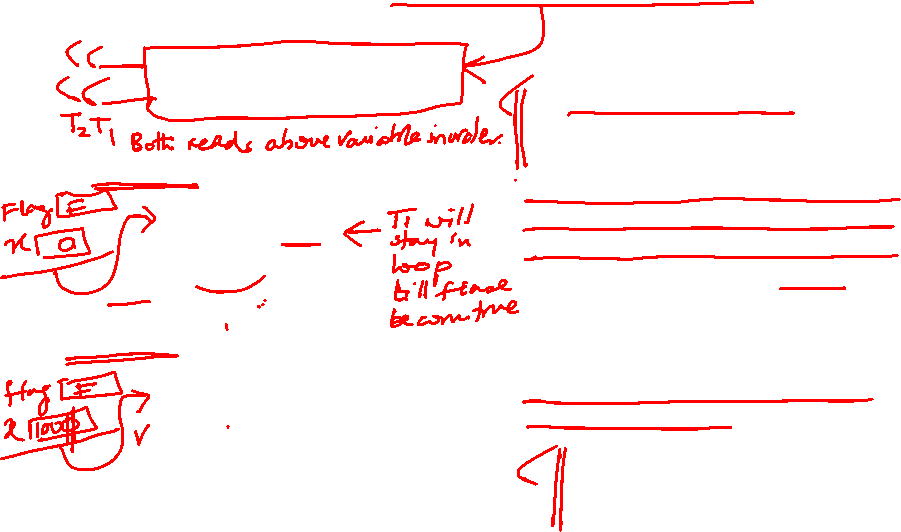 T2 T1
Both reads above variable in order.
Flag F
x 0
T1 will
stay in
loop
till
become true
flag F
x